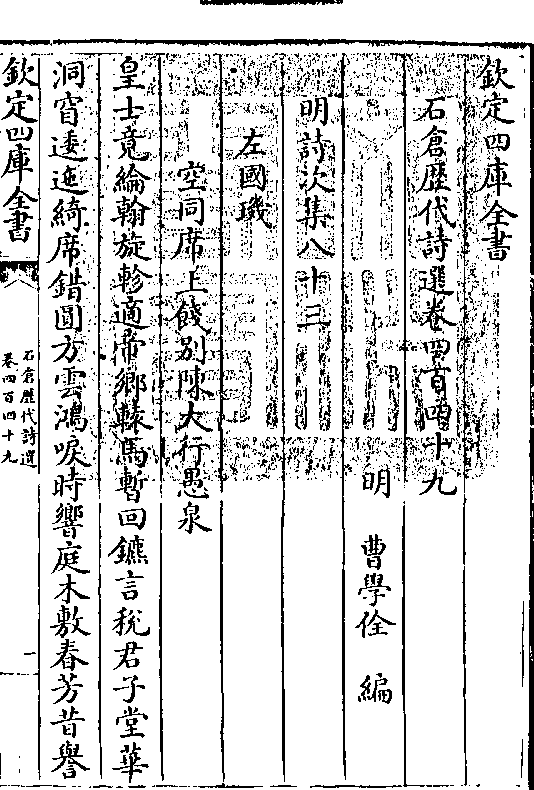 欽定四庫全書
石倉歷代詩選卷四百四十九
明 曹學佺 編
明詩次集八十三
左國璣
空同席上餞别陳大行愚泉
皇士竟綸翰旋軫適帝鄉蘇馬暫回鑣言稅君子堂華
洞窅逶迤綺席錯圓方雲鴻唳時響庭木敷春芳昔譽
欽定四庫全書
石倉歷代詩選
卷四百四十九
一